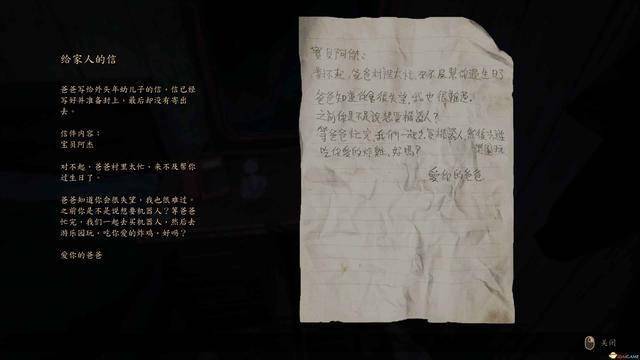 给家人的信
爸爸写给外头年幼儿子的信，信已经
写好并准备封上，最后却没有寄出
去。
信件内容：
宝贝阿杰
对不起，爸爸村里太忙，来不及帮你
过生日了。
爸爸知道你会很失望，我也很难过。
之前你是不是说想要机器人？等爸爸
忙完，我们一起去买机器人，然后去
游乐园玩，吃你爱的炸鸡，好吗？
爱你的爸爸
寶貝阿傑：
對不起，爸爸村裡太忙，來不及幫你過生日了
爸爸知道你會很失望，我也很難過。
之前你是不是說想要機器人？
等爸爸忙完，我們一起去買機器人，然後去遊
樂園玩
吃你愛的炸雞，好嗎？
愛你的爸爸
关闭